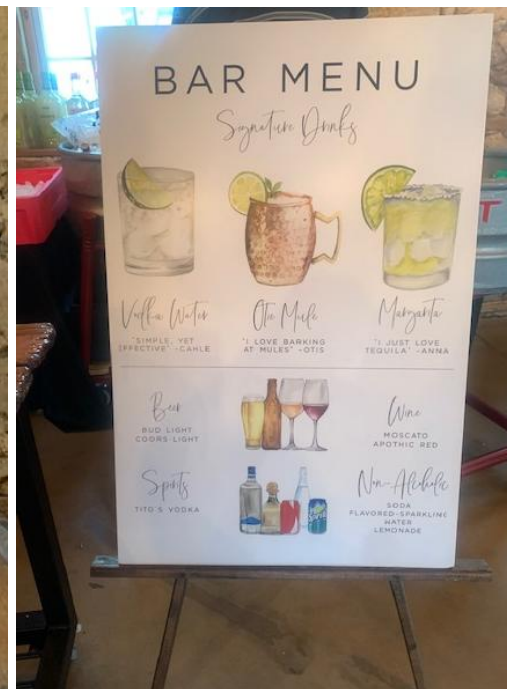 BAR MENU
Signature Drinks
Vodka Water
"SIMPLE, YET
EFFECTIVE" -CAHLE
Otis Mule
"I LOVE BARKING
AT MULES" -OTIS
Margarita
"I JUST LOVE
TEQUILA" -ANNA
Beer
BUD LIGHT
COORS LIGHT
Wine
MOSCATO
APOTHIC RED
Spirits
TITO'S VODKA
Non-Alcoholic
SODA
FLAVORED-SPARKLING
WATER
LEMONADE